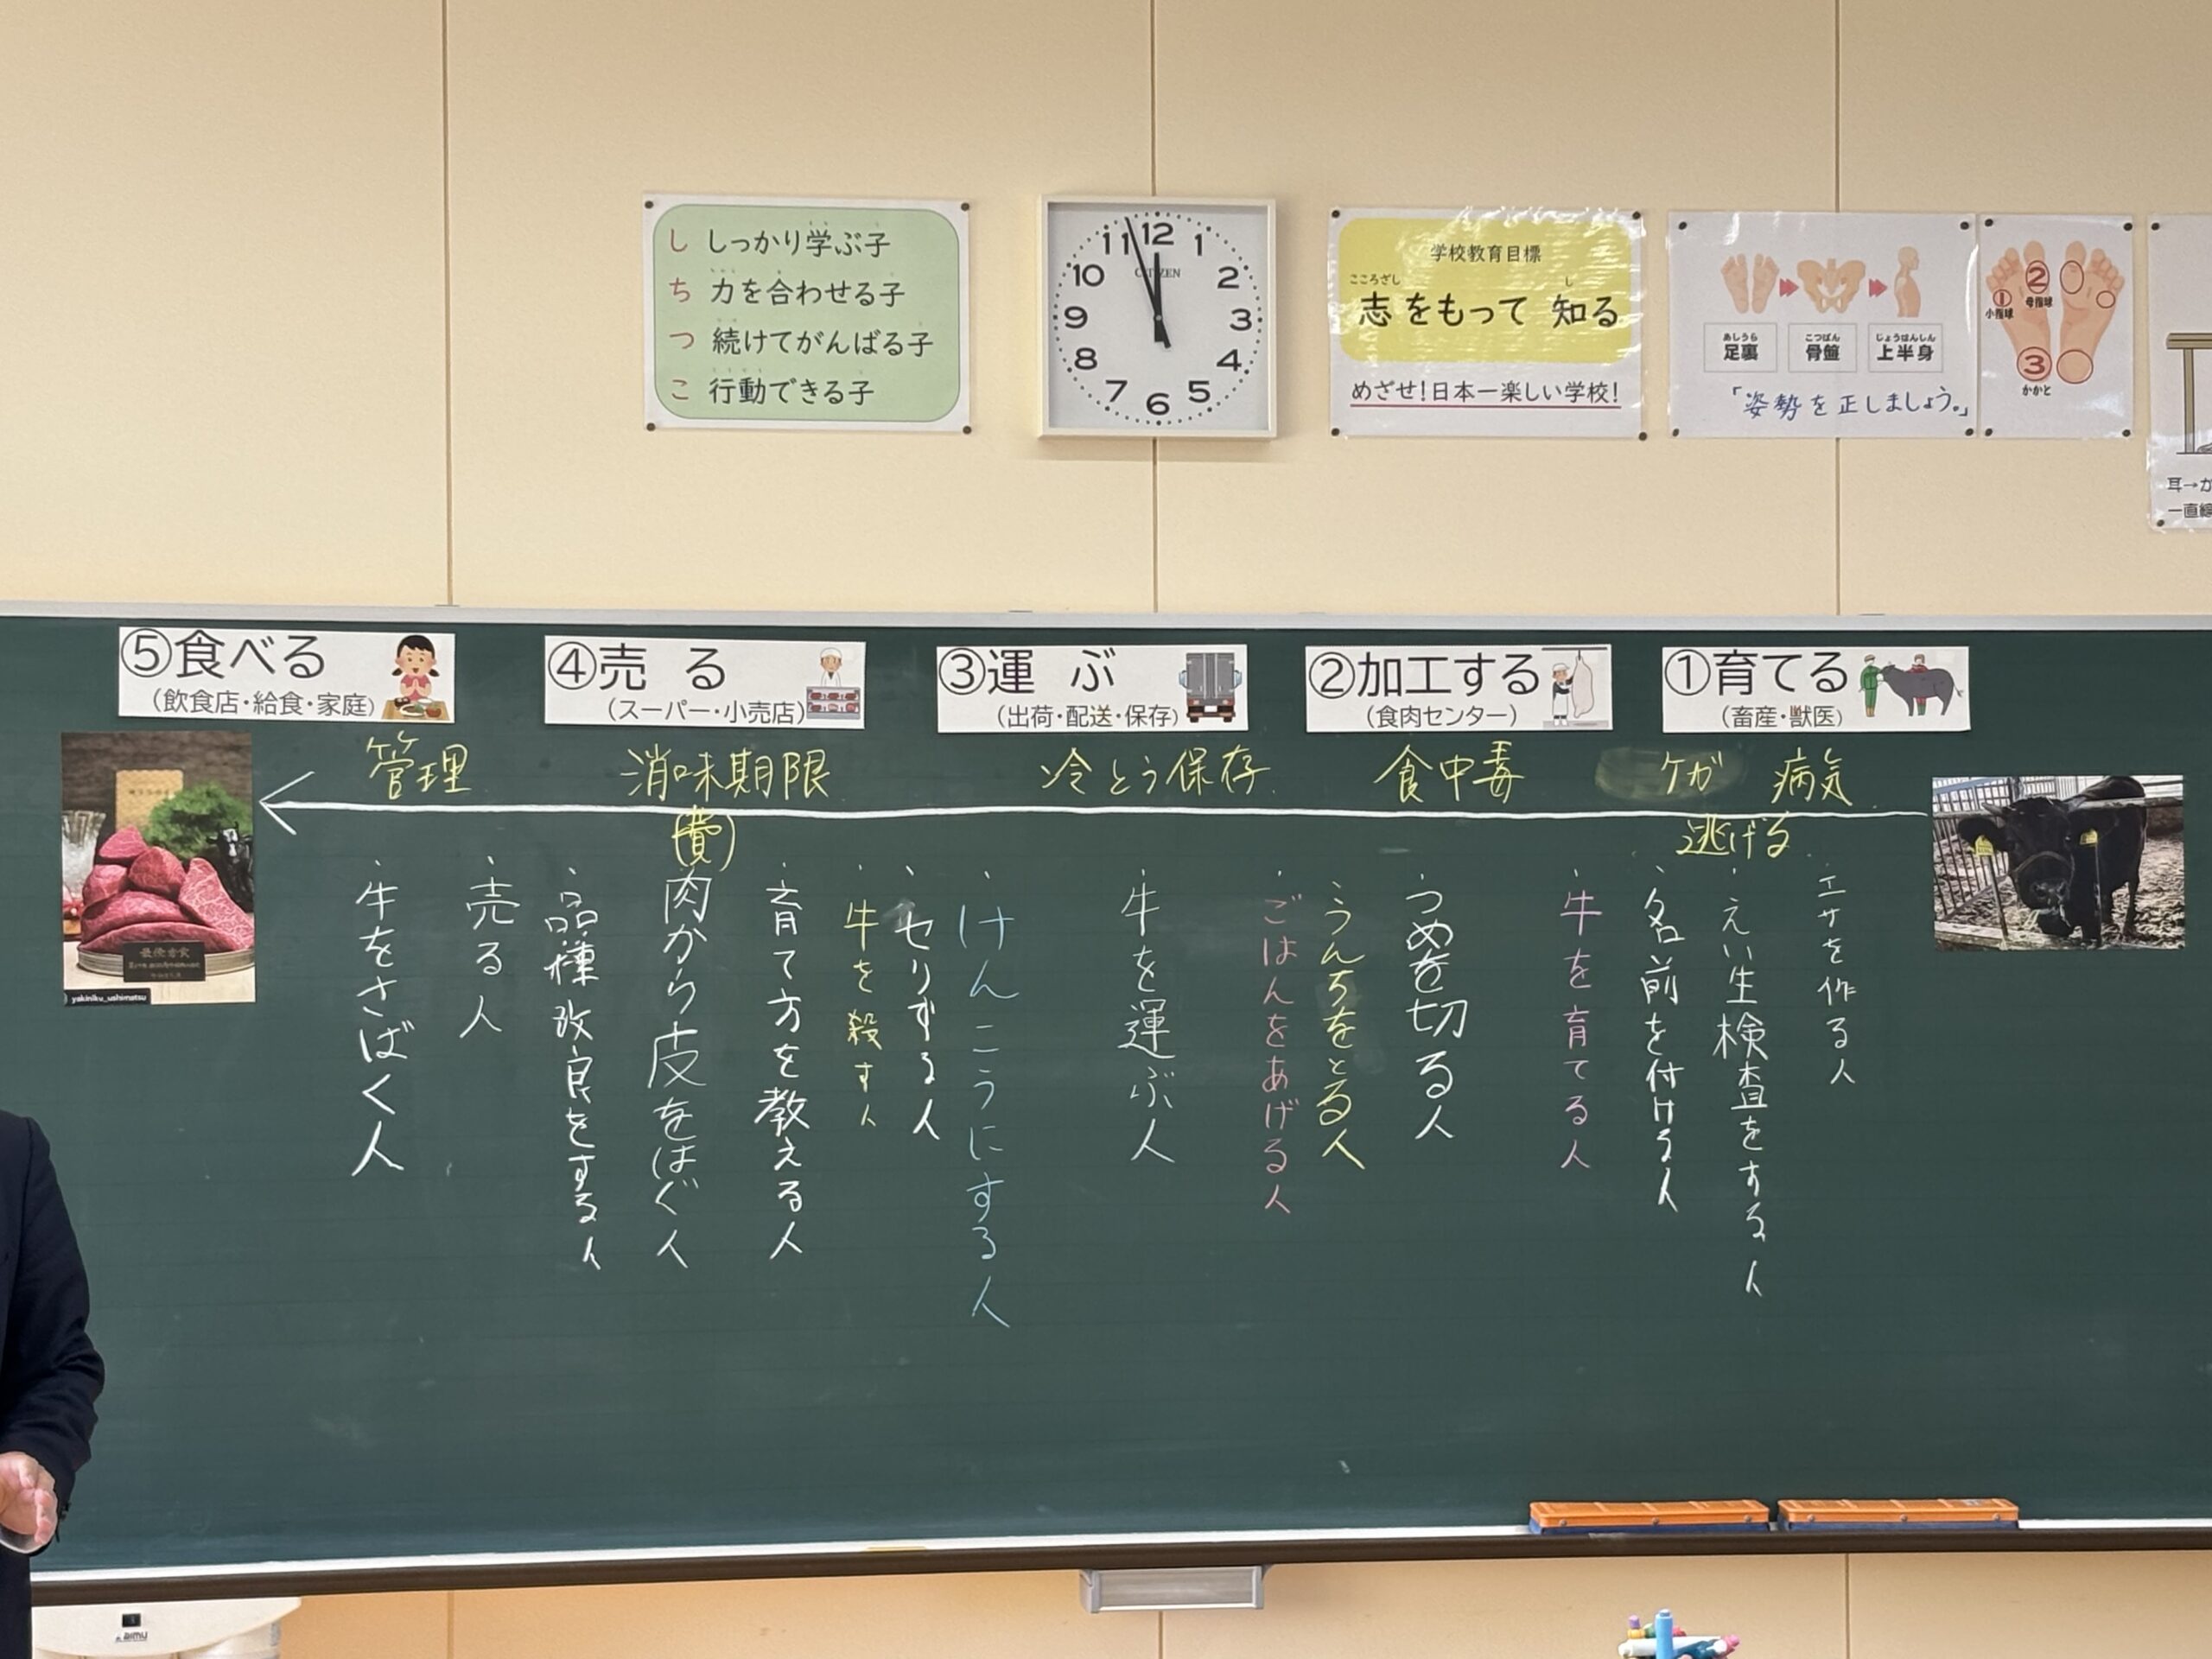 し しっかり学ぶ子
ち 力を合わせる子
つ 続けてがんばる子
こ 行動できる子
12
1
2
3
4
5
6
7
8
9
10
11
CITIZEN
学校教育目標
こころざし し
志をもって 知る
めざせ!日本一楽しい学校!
あしうら
足裏
こつばん
骨盤
じょうはんしん
上半身
「姿勢を正しましょう。」
①
小指球
②
母指球
③
かかと
耳→か
一直線
①育てる
(畜産・獣医)
②加工する
(食肉センター)
③運ぶ
(出荷・配送・保存)
④売る
(スーパー・小売店)
⑤食べる
(飲食店・給食・家庭)
病気
ケガ
逃げる
食中毒
冷とう保存
消味期限
(費)
管理
・エサを作る人
・えい生検査をする人
・名前を付ける人
・牛を育てる人
・つめを切る人
・うんちをとる人
・ごはんをあげる人
・牛を運ぶ人
・けんこうにする人
・セリする人
・牛を殺す人
・育て方を教える人
・肉から皮をはぐ人
・品種改良をする人
・売る人
・牛をさばく人
yakiniku_ushimatsu
aimu